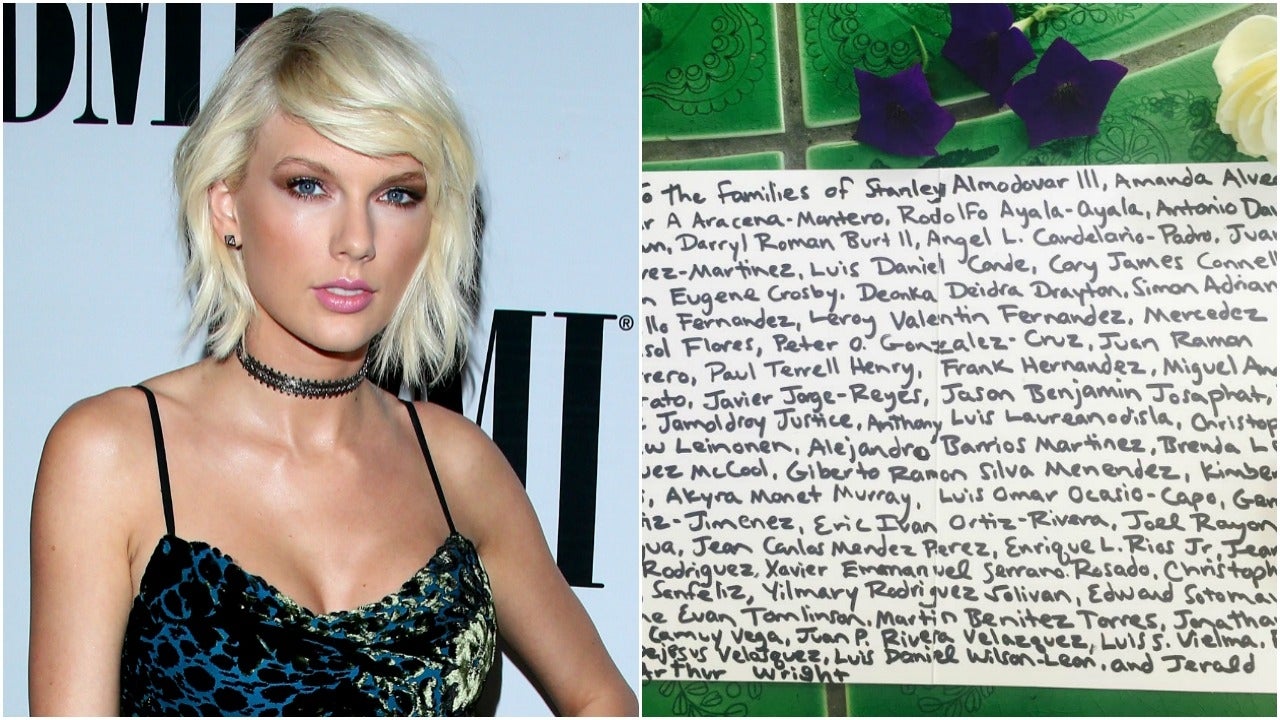 BMI
MI®
o the Families of Stanley Almodovar III, Amanda Alve
r A Aracena-Mantero, Rodolfo Ayala-ayala, Antonio Da
un, Darryl Roman Burt II, Angel L. Candelario-Padro, Juan
rez-Martinez, Luis Daniel Conde, Cory James Connell
n Eugene Crosby, Deonka Deidra Drayton, Simon Adrian
llo Fernandez, Leroy Valentin Fernandez, Mercedez
sol Flores, Peter O. Gonzalez-Cruz, Juan Ramon
rero, Paul Terrell Henry, Frank Hernandez, Miguel An
rato, Javier Jorge-Reyes, Jason Benjamin Josaphat,
Jamoldroy Justice, Anthony Luis Laureanodisla, Christop
w Leinonen, Alejandro Barrios Martinez, Brenda L
uez McCool, Giberto Ramon Silva Menendez, Kimbe
, Akyra Monet Murray, Luis Omar Ocasio-Capo, Ge
iz-Jimenez, Eric Ivan Ortiz-Rivera, Joel Rayon
ua, Jean Carlos Mendez Perez, Enrique L. Rios Jr, Jean
Rodriguez, Xavier Emmanuel Serrano Rosado, Christoph
Sanfeliz, Yilmary Rodriguez Solivan, Edward Sotoma
ne Evan Tomlinson, Martin Benitez Torres, Jonatha
Camuy Vega, Juan P. Rivera Velazquez, Luis S. Vielma,
ejesus Velasquez, Luis Daniel Wilson-Leon, and Jerald
Arthur Wright